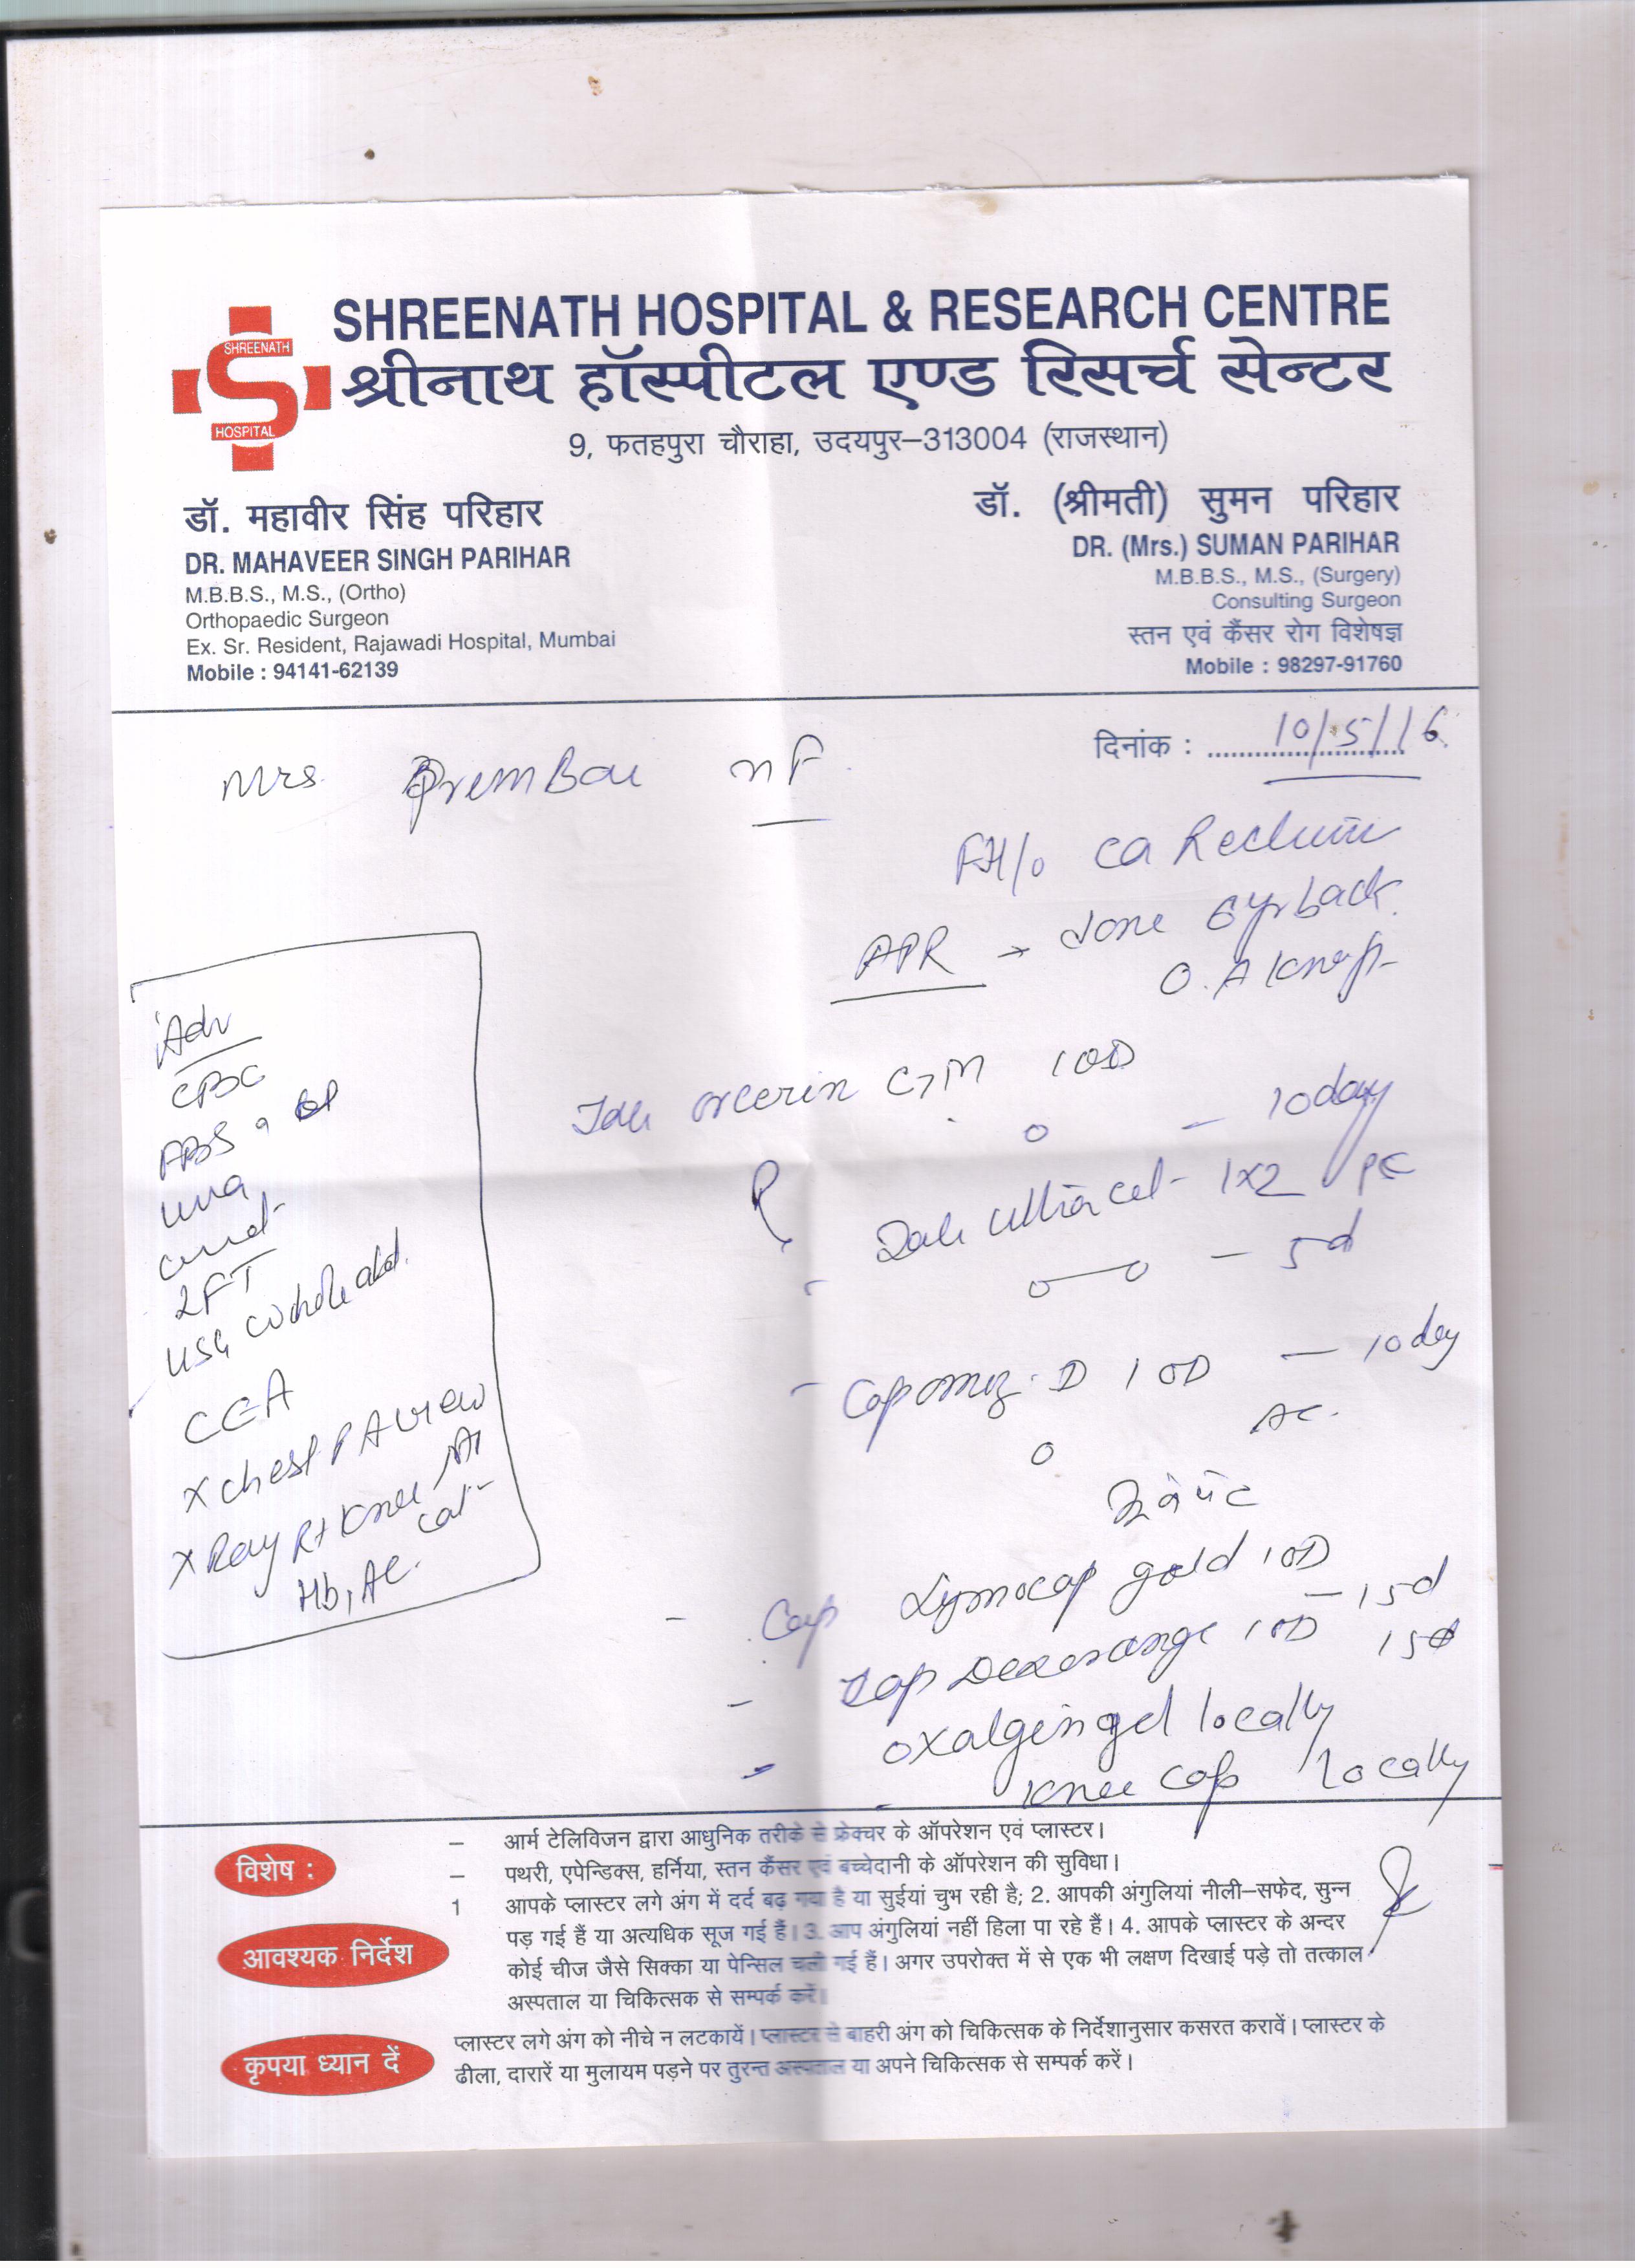 SHREENATH HOSPITAL & RESEARCH CENTRE
SHREENATH
श्रीनाथ हॉस्पीटल एण्ड रिसर्च सेन्टर
HOSPITAL
9, फतहपुरा चौराहा, उदयपुर–313004 (राजस्थान)
डॉ. महावीर सिंह परिहार
DR. MAHAVEER SINGH PARIHAR
M.B.B.S., M.S., (Ortho)
Orthopaedic Surgeon
Ex. Sr. Resident, Rajawadi Hospital, Mumbai
Mobile : 94141-62139
डॉ. (श्रीमती) सुमन परिहार
DR. (Mrs.) SUMAN PARIHAR
M.B.B.S., M.S., (Surgery)
Consulting Surgeon
स्तन एवं कैंसर रोग विशेषज्ञ
Mobile : 98297-91760
दिनांक : 10/5/16
Mrs. Prem Bai
H/o Ca Rectum
APR → done 6yr back
O.A Knee
Adv
CBC
FBS
urea
creat
LFT
USG whole abd.
CEA
X chest PA view
X Ray Rt Knee AP
Lat
Hb, AC.
Tab Orcerin GM 1 OD
10 day
Tab ultracet - 1x2 PC
- 5d
- Cap omez D 1 OD - 10 day
AC.
- Cap Lymocap gold 1 OD - 15d
- Cap Dexorange 1 OD 15d
- oxalgin gel locally
Knee Cap locally
विशेष :
– आर्म टेलिविजन द्वारा आधुनिक तरीके से फ्रेक्चर के ऑपरेशन एवं प्लास्टर।
– पथरी, एपेन्डिक्स, हर्निया, स्तन कैंसर एवं बच्चेदानी के ऑपरेशन की सुविधा।
आवश्यक निर्देश
1 आपके प्लास्टर लगे अंग में दर्द बढ़ गया है या सुईयां चुभ रही है; 2. आपकी अंगुलियां नीली–सफेद, सुन्न
पड़ गई हैं या अत्यधिक सूज गई हैं। 3. आप अंगुलियां नहीं हिला पा रहे हैं। 4. आपके प्लास्टर के अन्दर
कोई चीज जैसे सिक्का या पेन्सिल चली गई हैं। अगर उपरोक्त में से एक भी लक्षण दिखाई पड़े तो तत्काल
अस्पताल या चिकित्सक से सम्पर्क करें।
कृपया ध्यान दें
प्लास्टर लगे अंग को नीचे न लटकायें। प्लास्टर से बाहरी अंग को चिकित्सक के निर्देशानुसार कसरत करावें। प्लास्टर के
ढीला, दारारें या मुलायम पड़ने पर तुरन्त अस्पताल या अपने चिकित्सक से सम्पर्क करें।